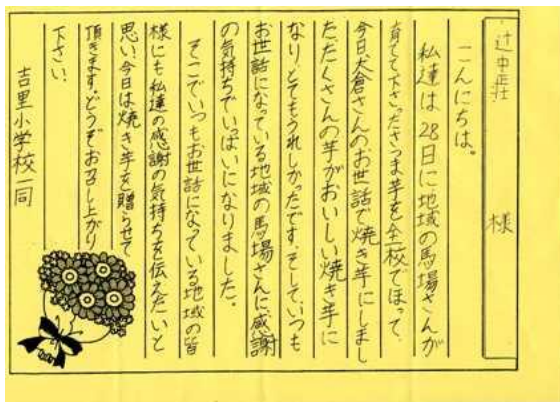 辻中荘 様
こんにちは。
私達は28日に地域の馬場さんが
育てて下さったさつま芋を全校でほって、
今日大倉さんのお世話で焼き芋にしまし
たたくさんの芋がおいしい焼き芋に
なり、とてもうれしかったです。そして、いつも
お世話になっている地域の馬場さんに感謝
の気持ちでいっぱいになりました。
そこでいつもお世話になっている地域の皆
様にも私達の感謝の気持ちを伝えたいと
思い、今日は焼き芋を贈らせて
頂きます。どうぞお召し上がり
下さい。
吉里小学校一同